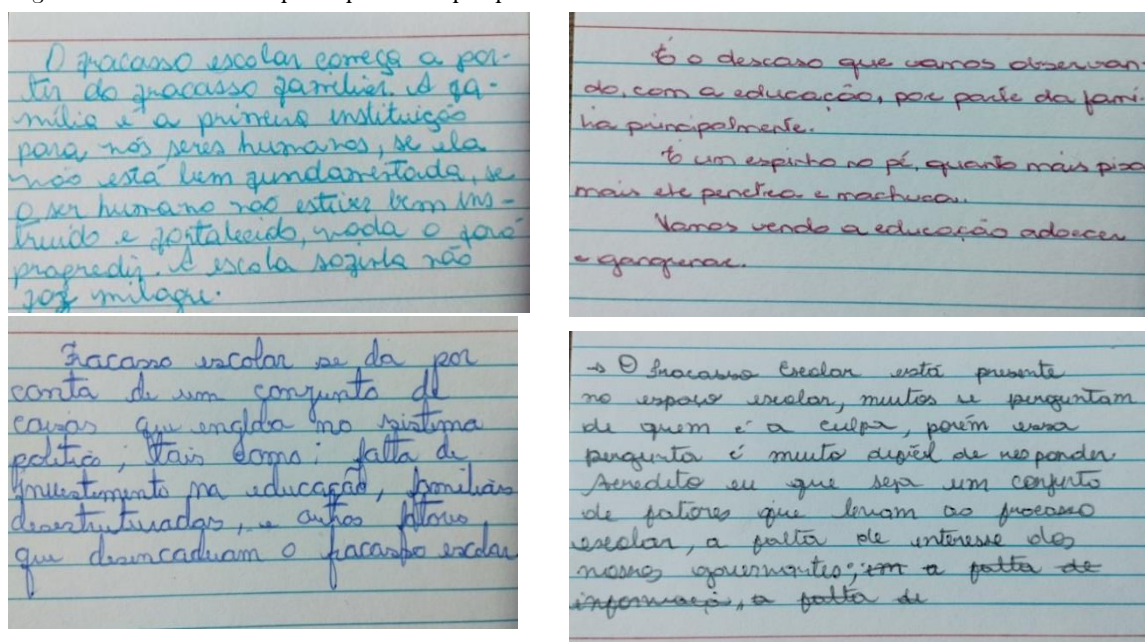 O fracasso escolar começa a par-
tir do fracasso familiar. A fa-
mília é a primeira instituição
para nós seres humanos, se ela
não está bem fundamentada, se
o ser humano não estiver bem ins-
truido e fortalecido, nada o fará
progredir. A escola sozinha não
faz milagre.
É o descaso que vamos observan-
do, com a educação, por parte da famí-
lia principalmente.
É um espinho no pé, quanto mais pisa
mais ele penetra e machuca.
Vamos vendo a educação adoecer
e gangrenar.
Fracasso escolar se da por
conta de um conjunto de
causas que engloba no sistema
politico, tais como: falta de
investimento na educação, familias
desestruturadas, e outros fatores
que desencadeam o fracasso escolar
→ O fracasso Escolar está presente
no espaço escolar, muitos se perguntam
de quem é a culpa, porém essa
pergunta é muito difícil de responder
Acredito eu que seja um conjunto
de fatores que levam ao fracasso
escolar, a falta de interesse dos
nossos governantes; em a falta de
informaçã, a falta de